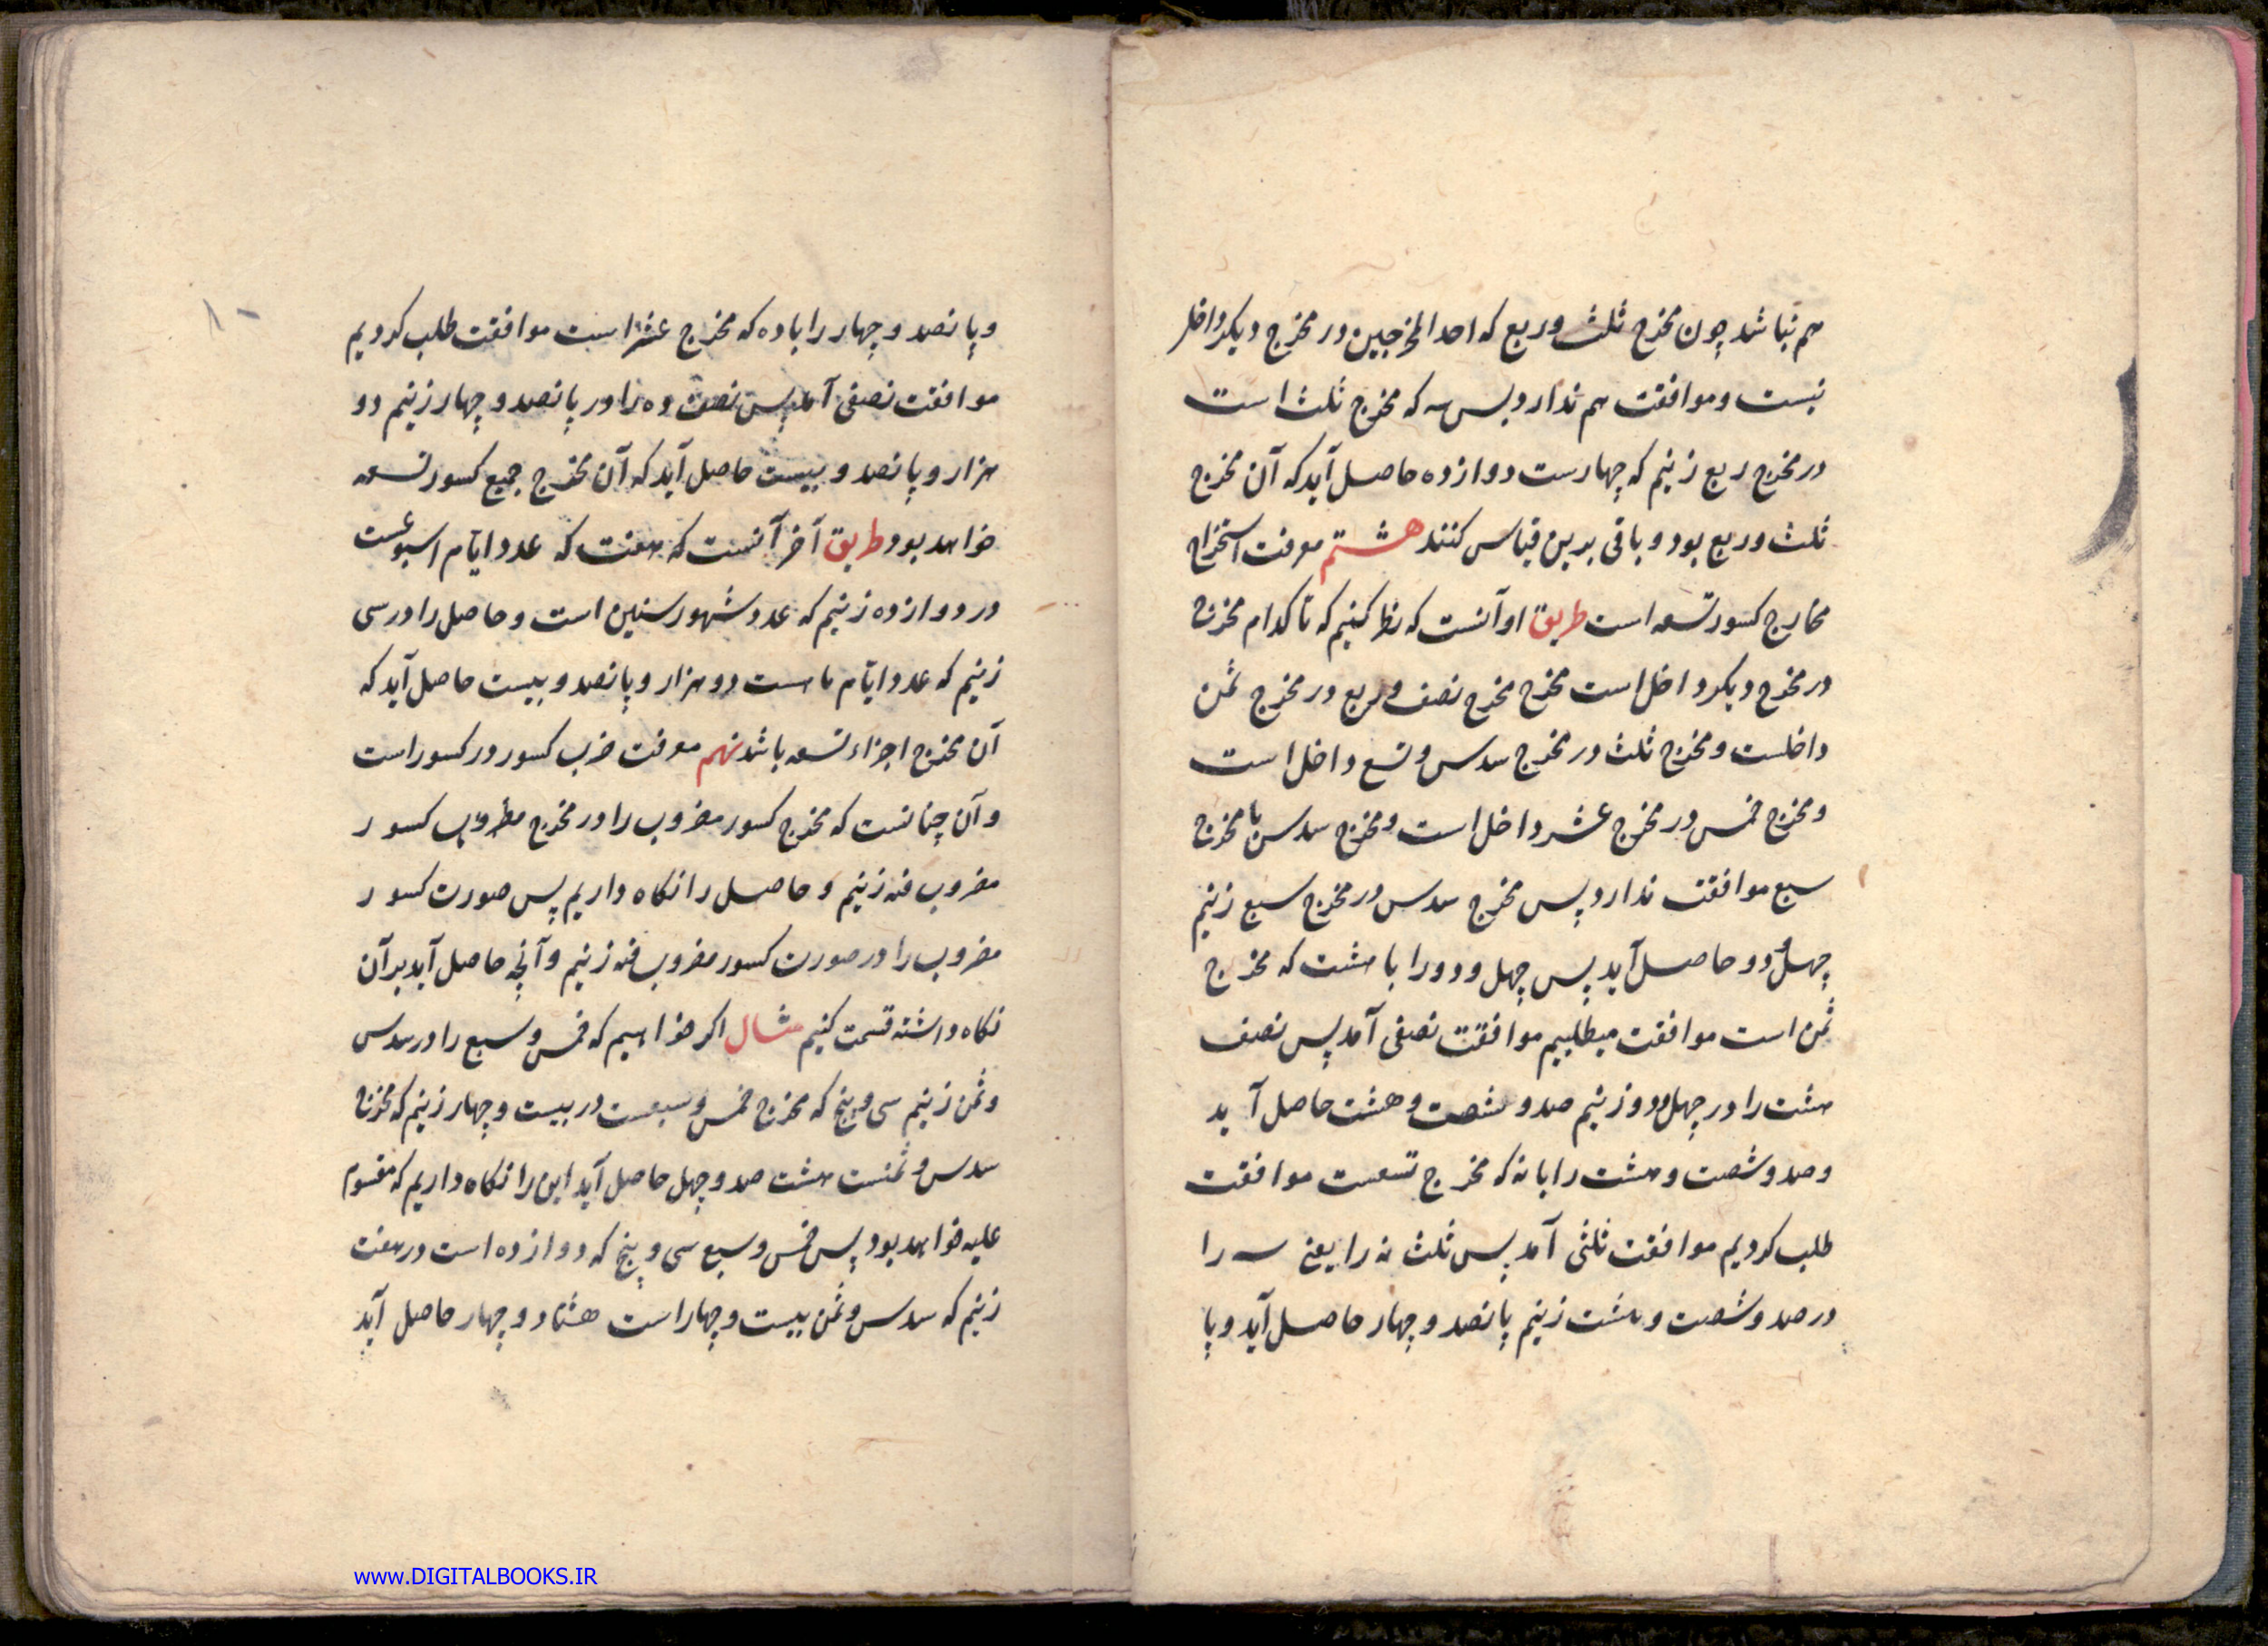 هم نباشد چون مخرج ثلث و ربع که احد المخرجین در مخرج دیکر داخل
نیست و موافقت هم ندارد پس سه که مخرج ثلث است
در مخرج ربع زنیم که چهارست دوازده حاصل آید که آن مخرج
ثلث و ربع بود و باقی برین قیاس کنند هشتم معرفت استخراج
مخارج کسور تسعه است طریق او آنست که نظر کنیم که تا کدام مخرج
در مخرج دیکر داخل است مخرج مخرج نصف و ربع در مخرج ثمن
داخلست و مخرج ثلث در مخرج سدس و تسع داخل است
و مخرج خمس در مخرج عشر داخل است و مخرج سدس با مخرج
سبع موافقت ندارد پس مخرج سدس در مخرج سبع زنیم
چهل و دو حاصل آید پس چهل و دو را با هشت که مخرج
ثمن است موافقت میطلبیم موافقت نصفی آمد پس نصف
هشت را در چهل و دو زنیم صد و شصت و هشت حاصل آید
و صد و شصت و هشت را با نه که مخرج تسعست موافقت
طلب کردیم موافقت ثلثی آمد پس ثلث نه را یعنی سه را
در صد و شصت و هشت زنیم پانصد و چهار حاصل آید و پا
۱۰
و پانصد و چهار را با ده که مخرج عشر است موافقت طلب کردیم
موافقت نصفی آمد پس نصف ده را در پانصد و چهار زنیم دو
هزار و پانصد و بیست حاصل آید که آن مخرج جمیع کسور تسعه
خواهد بود طریق آخر آنست که هفت که عدد ایام اسبوعست
در دوازده زنیم که عدد شهور سنین است و حاصل را در سی
زنیم که عدد ایام ماهست دو هزار و پانصد و بیست حاصل آید که
آن مخرج اجزاء تسعه باشد نهم معرفت ضرب کسور در کسور است
و آن چنانست که مخرج کسور مضروب را در مخرج مضروب کسور
مضروب فیه زنیم و حاصل را نکاه داریم پس صورت کسور
مضروب را در صورت کسور مضروب فیه زنیم و آنچه حاصل آید بر آن
نکاه داشته قسمت کنیم مثال اکر خواهیم که خمس و سبع را در سدس
و ثمن زنیم سی و پنج که مخرج خمس و سبعست در بیست و چهار زنیم که مخرج
سدس و ثمنست هشت صد و چهل حاصل آید این را نکاه داریم که مقسوم
علیه خواهد بود پس خمس و سبع سی و پنج که دوازده است در هفت
زنیم که سدس و ثمن بیست و چهار است هشتاد و چهار حاصل آید
www.DIGITALBOOKS.IR